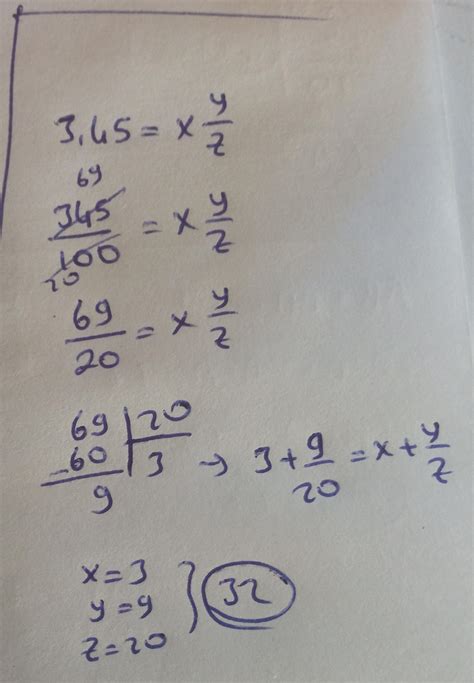 3,45 = x y/z
69
345/100 = x y/z
20
69/20 = x y/z
69 | 20
-60 | 3 → 3 + 9/20 = x + y/z
9
x = 3
y = 9 } 32
z = 20